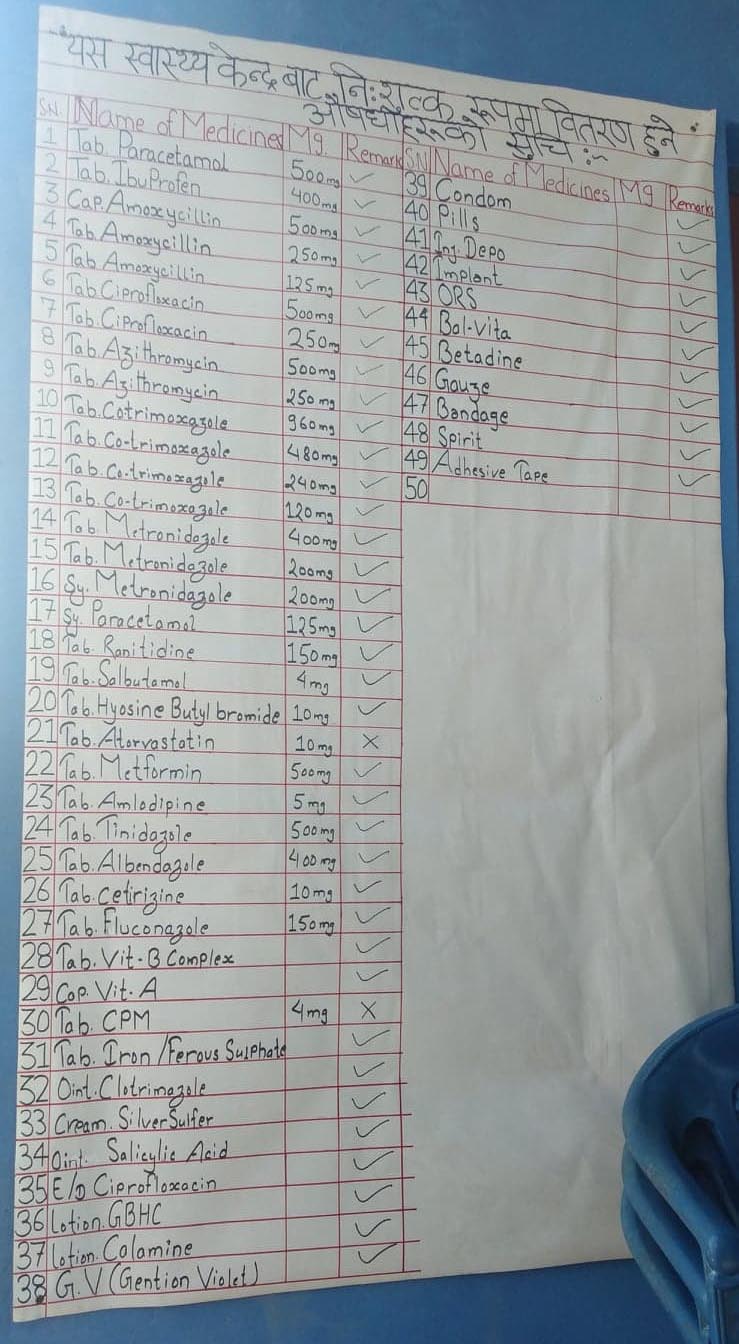 यस स्वास्थ्य केन्द्र बाट निःशुल्क रूपमा वितरण हुने
औषधीहरूको सुचि :-
SN. Name of Medicines Mg. Remark
1 Tab. Paracetamol 500mg ✓
2 Tab. Ibuprofen 400mg ✓
3 Cap. Amoxycillin 500mg ✓
4 Tab Amoxycillin 250mg ✓
5 Tab Amoxycillin 125mg ✓
6 Tab Ciprofloxacin 500mg ✓
7 Tab. Ciprofloxacin 250mg ✓
8 Tab. Azithromycin 500mg ✓
9 Tab. Azithromycin 250mg ✓
10 Tab. Cotrimoxazole 960mg ✓
11 Tab. Co-trimoxazole 480mg ✓
12 Tab. Co-trimoxazole 240mg ✓
13 Tab. Co-trimoxazole 120mg ✓
14 Tab. Metronidazole 400mg ✓
15 Tab. Metronidazole 200mg ✓
16 Sy. Metronidazole 200mg ✓
17 Sy. Paracetamol 125mg ✓
18 Tab. Ranitidine 150mg ✓
19 Tab. Salbutamol 4mg ✓
20 Tab. Hyosine Butyl bromide 10mg ✓
21 Tab. Atorvastatin 10mg ×
22 Tab. Metformin 500mg ✓
23 Tab. Amlodipine 5mg ✓
24 Tab. Tinidazole 500mg ✓
25 Tab. Albendazole 400mg ✓
26 Tab. Cetirizine 10mg ✓
27 Tab. Fluconazole 150mg ✓
28 Tab. Vit-B Complex ✓
29 Cap. Vit. A ✓
30 Tab. CPM 4mg ×
31 Tab. Iron/Ferous Sulphate ✓
32 Oint. Clotrimazole ✓
33 Cream. Silver Sulfer ✓
34 Oint. Salicylic Acid ✓
35 E/D Ciprofloxacin ✓
36 Lotion. GBHC ✓
37 Lotion. Calamine ✓
38 G.V (Gention Violet) ✓
SN Name of Medicines Mg Remarks
39 Condom ✓
40 Pills ✓
41 Inj. Depo ✓
42 Implant ✓
43 ORS ✓
44 Bal-Vita ✓
45 Betadine ✓
46 Gauze ✓
47 Bandage ✓
48 Spirit ✓
49 Adhesive Tape ✓
50